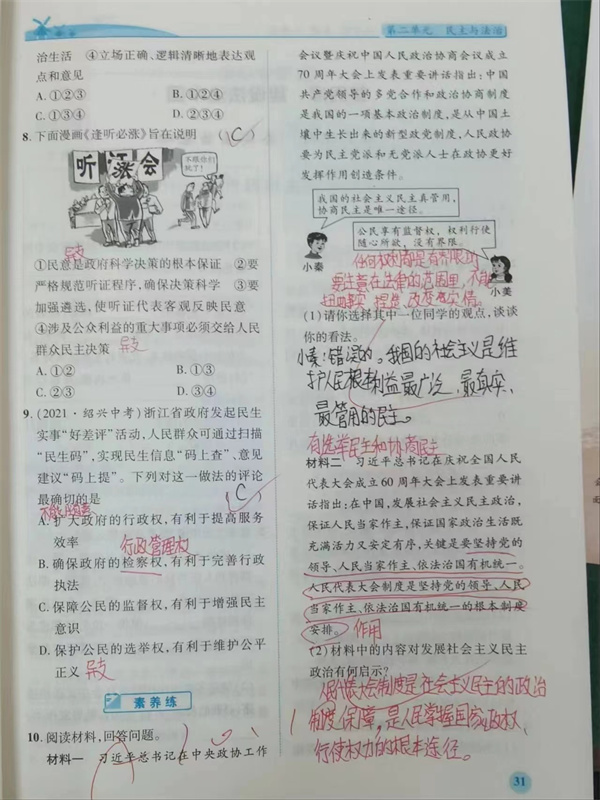 第二单元 民主与法治
治生活 ④立场正确、逻辑清晰地表达观
点和意见
A.①②③ B.①②④
C.①③④ D.②③④
8.下面漫画《逢听必涨》旨在说明 (C)
听涨会
异步
①民意是政府科学决策的根本保证 ②要
严格规范听证程序,确保决策科学 ③要
加强遴选,使听证代表客观反映民意
④涉及公众利益的重大事项必须交给人民
群众民主决策 异步
A.①② B.①③
C.②③ D.③④
9.(2021·绍兴中考)浙江省政府发起民生
实事“好差评”活动,人民群众可通过扫描
“民生码”,实现民生信息“码上查”、意见
建议“码上提”。下列对这一做法的评论
最确切的是 (C)
A.扩大政府的行政权,有利于提高服务
效率
行政管理权
B.确保政府的检察权,有利于完善行政
执法
C.保障公民的监督权,有利于增强民主
意识
D.保护公民的选举权,有利于维护公平
正义 异步
素养练
10.阅读材料,回答问题。
材料一 习近平总书记在中央政协工作
会议暨庆祝中国人民政治协商会议成立
70周年大会上发表重要讲话指出:中国
共产党领导的多党合作和政治协商制度
是我国的一项基本政治制度,是从中国土
壤中生长出来的新型政党制度,人民政协
要为民主党派和无党派人士在政协更好
发挥作用创造条件。
我国的社会主义民主真管用,
协商民主是唯一途径。
公民享有监督权,权利行使
随心所欲,没有界限。
小秦
小美
任何权利都是有界限的
要注意在法律的范围里,不能
扭曲事实 捏造、改变真实情。
(1)请你选择其中一位同学的观点,谈谈
你的看法。
小秦:错误的。我国的社会主义是维
护人民根本利益最广泛、最真实、
最管用的民主。
有选举民主和协商民主
材料二 习近平总书记在庆祝全国人民
代表大会成立60周年大会上发表重要讲
话指出:在中国,发展社会主义民主政治,
保证人民当家作主,保证国家政治生活既
充满活力又安定有序,关键是要坚持党的
领导、人民当家作主、依法治国有机统一。
人民代表大会制度是坚持党的领导、人民
当家作主、依法治国有机统一的根本制度
安排。 作用
(2)材料中的内容对发展社会主义民主
政治有何启示?
人民代表大会制度是社会主义民主的政治
制度保障,是人民掌握国家政权、
行使权力的根本途径。
31